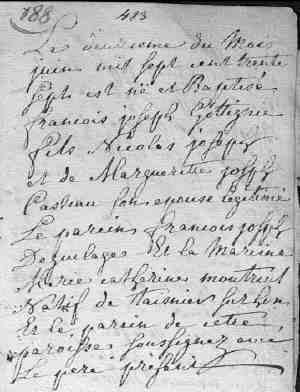 188 483
Le deuxieme du Mois
juin mil sept cent trente
sept est né et Baptisé
francois joseph Gottignie
fils Nicolas joseph
et de Margueritte joseph
Casteau son epouse legitime
Le parein francois joseph
et la Mareine
Marie catherine montriel
Natif de
Et le parein de cette
paroisse soussignez avec
Le pere présent